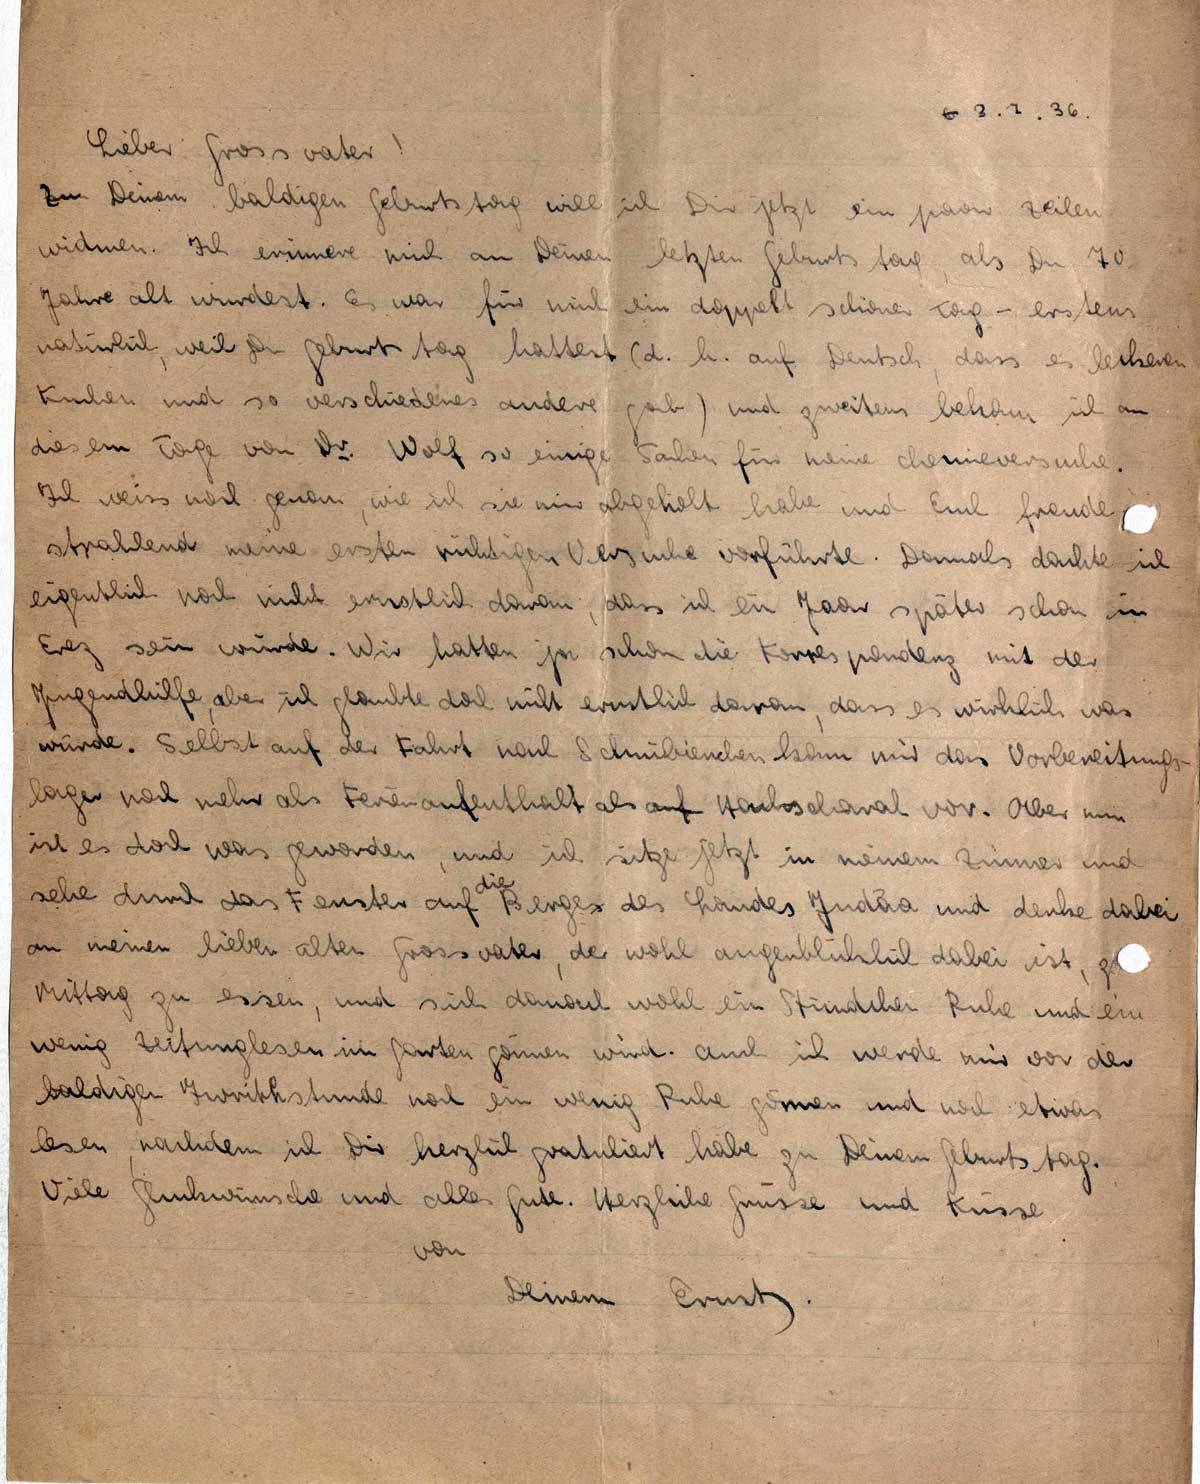 3.7.36.
Lieber Grossvater!
Zu Deinem baldigen Geburtstag will ich Dir jetzt ein paar Zeilen
widmen. Ich erinnere mich an Deinen letzten Geburtstag, als Du 70
Jahre alt wurdest. Es war für mich ein doppelt schöner Tag – erstens
natürlich, weil Du Geburtstag hattest (d. h. auf Deutsch, dass es leckeren
Kuchen und so verschiedenes andere gab) und zweitens bekam ich an
diesem Tage von Dr. Wolf so einige Sachen für meine Chemieversuche.
Ich weiss noch genau, wie ich sie mir abgeholt habe und Euch freude
strahlend meine ersten richtigen Versuche vorführte. Damals dachte ich
eigentlich noch nicht ernstlich daran, dass ich ein Jaar später schon in
Erez sein würde. Wir hatten ja schon die Korrespondenz mit der
Jugendhilfe, aber ich glaubte doch nicht ernstlich daran, dass es wirklich was
würde. Selbst auf der Fahrt nach Schniebinchen kam mir das Vorbereitungs-
lager noch mehr als Ferienaufenthalt als auf Hachscharah vor. Aber nun
ist es doch was geworden, und ich sitze jetzt in meinem Zimmer und
sehe durch das Fenster auf die Berge des Landes Judäa und denke dabei
an meinen lieben alten Grossvater, der wohl augenblicklich dabei ist,
Mittag zu essen, und sich danach wohl ein Stündchen Ruhe und ein
wenig Zeitunglesen im Garten gönnen wird. Auch ich werde mir vor der
baldigen Iwrithstunde noch ein wenig Ruhe gönnen und noch etwas
lesen, nachdem ich Dir herzlich gratuliert habe zu Deinem Geburtstag.
Viele Glückwünsche und alles Gute. Herzliche Grüsse und Küsse
von
Deinem Ernst.